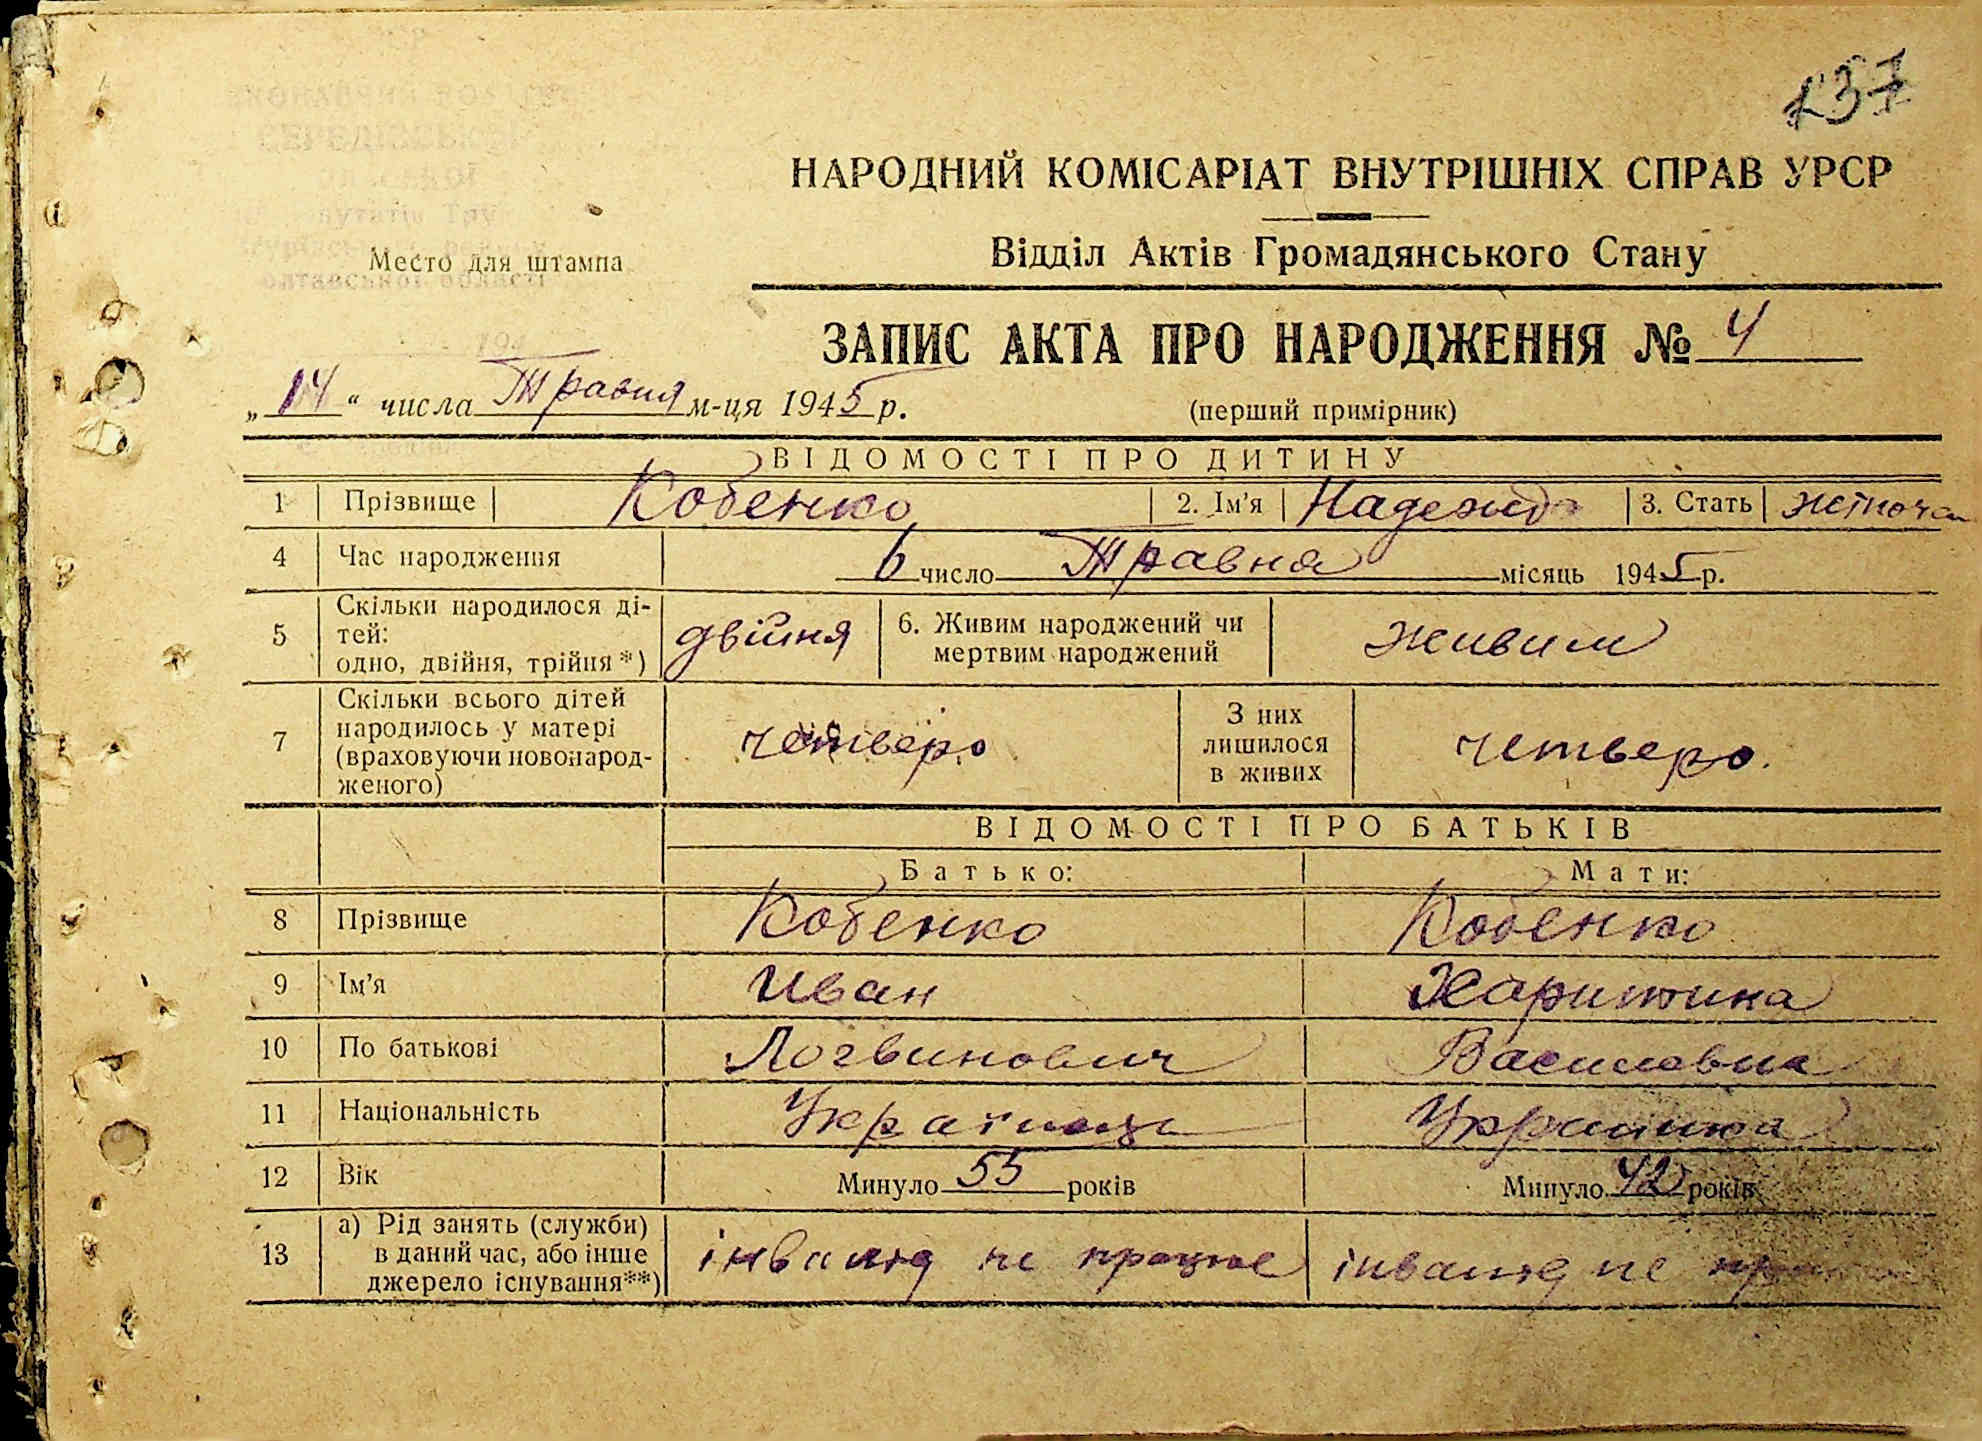 137
НАРОДНИЙ КОМІСАРІАТ ВНУТРІШНІХ СПРАВ УРСР
Відділ Актів Громадянського Стану
Место для штампа
олтавської області
ЗАПИС АКТА ПРО НАРОДЖЕННЯ № 4
„14“ числа Травня м-ця 1945 р.
(перший примірник)
ВІДОМОСТІ ПРО ДИТИНУ
1 Прізвище Кобенко 2. Ім'я Надежда 3. Стать жіноча
4 Час народження 6 число Травня місяць 1945 р.
5 Скільки народилося ді-
тей:
одно, двійня, трійня*) двійня 6. Живим народжений чи
мертвим народжений живим
7 Скільки всього дітей
народилось у матері
(враховуючи новонарод-
женого) четверо З них
лишилося
в живих четверо.
ВІДОМОСТІ ПРО БАТЬКІВ
Батько: Мати:
8 Прізвище Кобенко Кобенко
9 Ім'я Иван Харитина
10 По батькові Логвинович Василевна
11 Національність Українець Українка
12 Вік Минуло 55 років Минуло 42 років
13 а) Рід занять (служби)
в даний час, або інше
джерело існування**) інвалід не працює інвалід не